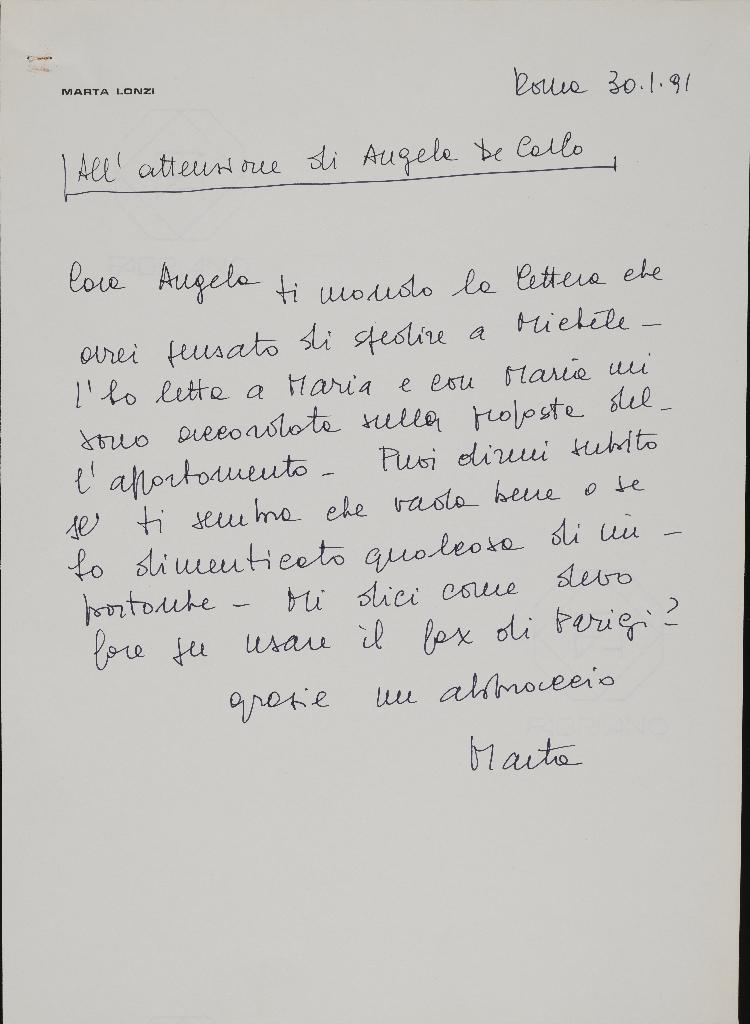 MARTA LONZI
Roma 30.1.91
All'attenzione di Angela De Carlo
Cara Angela ti mando la lettera che
avrei pensato di spedire a Michèle –
l'ho letta a Maria e con Maria mi
sono accordata sulla proposta del-
l'appartamento – Puoi dirmi subito
se ti sembra che vada bene o se
ho dimenticato qualcosa di im-
portante – Mi dici come devo
fare per usare il fax di Parigi?
grazie un abbraccio
Marta